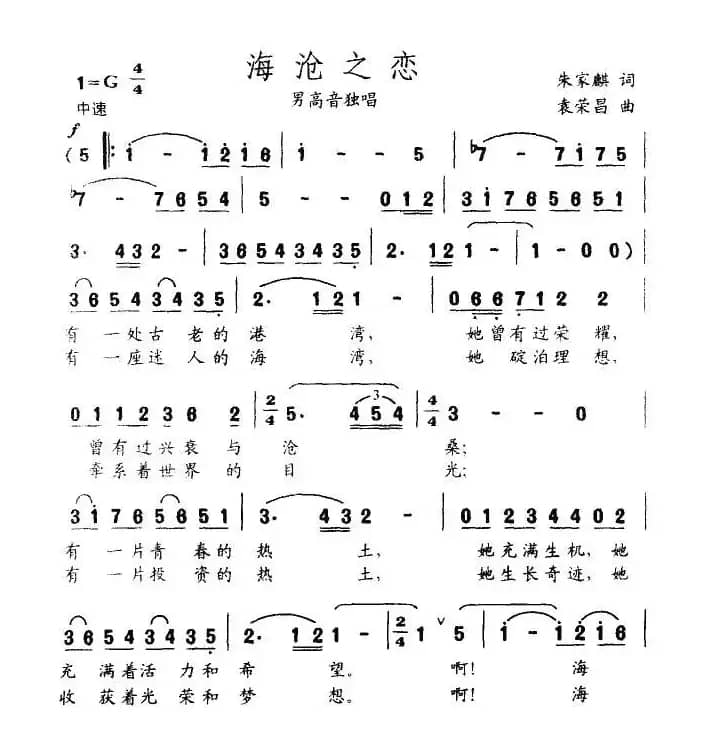 海沧之恋
1=G 4/4
男高音独唱
朱家麒 词
中速
袁荣昌 曲
f
(5 ‖: 1 - 1 2 1 6 | 1 - - 5 | ♭7 - 7 1 7 5 |
♭7 - 7 6 5 4 | 5 - - 0 1 2 | 3 1 7 6 5 6 5 1 |
3· 4 3 2 - | 3 6 5 4 3 4 3 5 | 2· 1 2 1 - | 1 - 0 0 )
3 6 5 4 3 4 3 5 | 2· 1 2 1 - | 0 6 6 7 1 2 2 |
有 一处古 老的港 湾, 她曾有过荣 耀,
有 一座迷 人的海 湾, 她 碇泊理 想,
0 1 1 2 3 6 2 | 2/4 5· 4 5 4 | 4/4 3 - - 0 |
3
曾有过兴衰 与 沧 桑;
牵系着世界 的 目 光;
3 1 7 6 5 6 5 1 | 3· 4 3 2 - | 0 1 2 3 4 4 0 2 |
有 一片青 春的热 土, 她充满生机, 她
有 一片投 资的热 土, 她生长奇迹, 她
3 6 5 4 3 4 3 5 | 2· 1 2 1 - | 2/4 1 ∨ 5 | 1 - 1 2 1 6 |
充 满着活 力和希 望。 啊! 海
收 获着光 荣和梦 想。 啊! 海